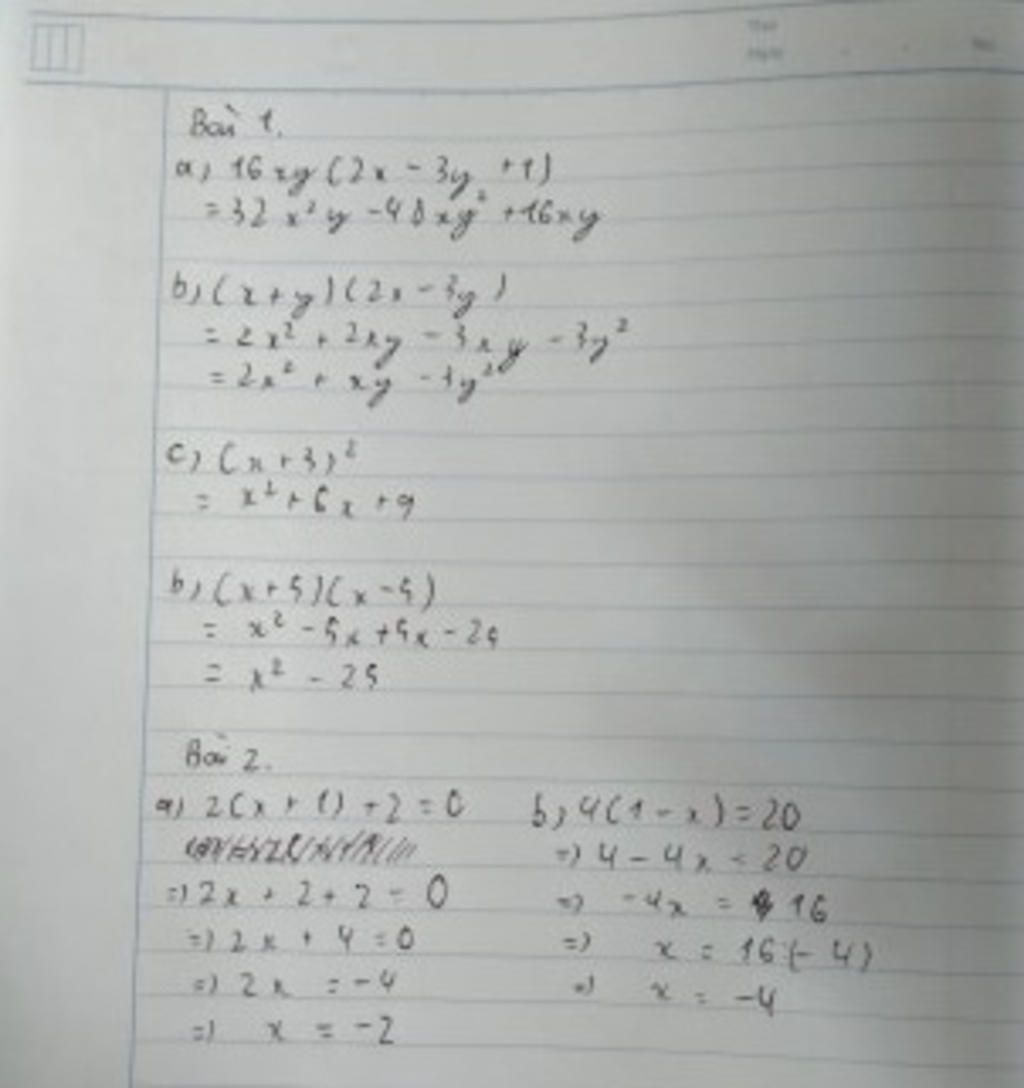 Bài 1.
a) 16xy(2x - 3y + 1)
= 32x²y - 48xy² + 16xy
b) (x + y)(2x - 3y)
= 2x² + 2xy - 3xy - 3y²
= 2x² + xy - 3y²
c) (x + 3)²
= x² + 6x + 9
b) (x + 5)(x - 5)
= x² - 5x + 5x - 25
= x² - 25
Bài 2.
a) 2(x + 1) + 2 = 0
=> 2x + 2 + 2 = 0
=> 2x + 4 = 0
=> 2x = -4
=> x = -2
b) 4(1 - x) = 20
=> 4 - 4x = 20
=> -4x = 16
=> x = 16:(-4)
=> x = -4